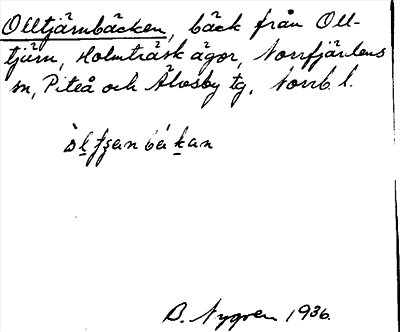 Olltjärnbäcken, bäck från Oll-
tjärn, Holmträsk ägor, Norrfjärdens
sn, Piteå och Älvsby tg, Norrb. l.
B. Nygren 1936.